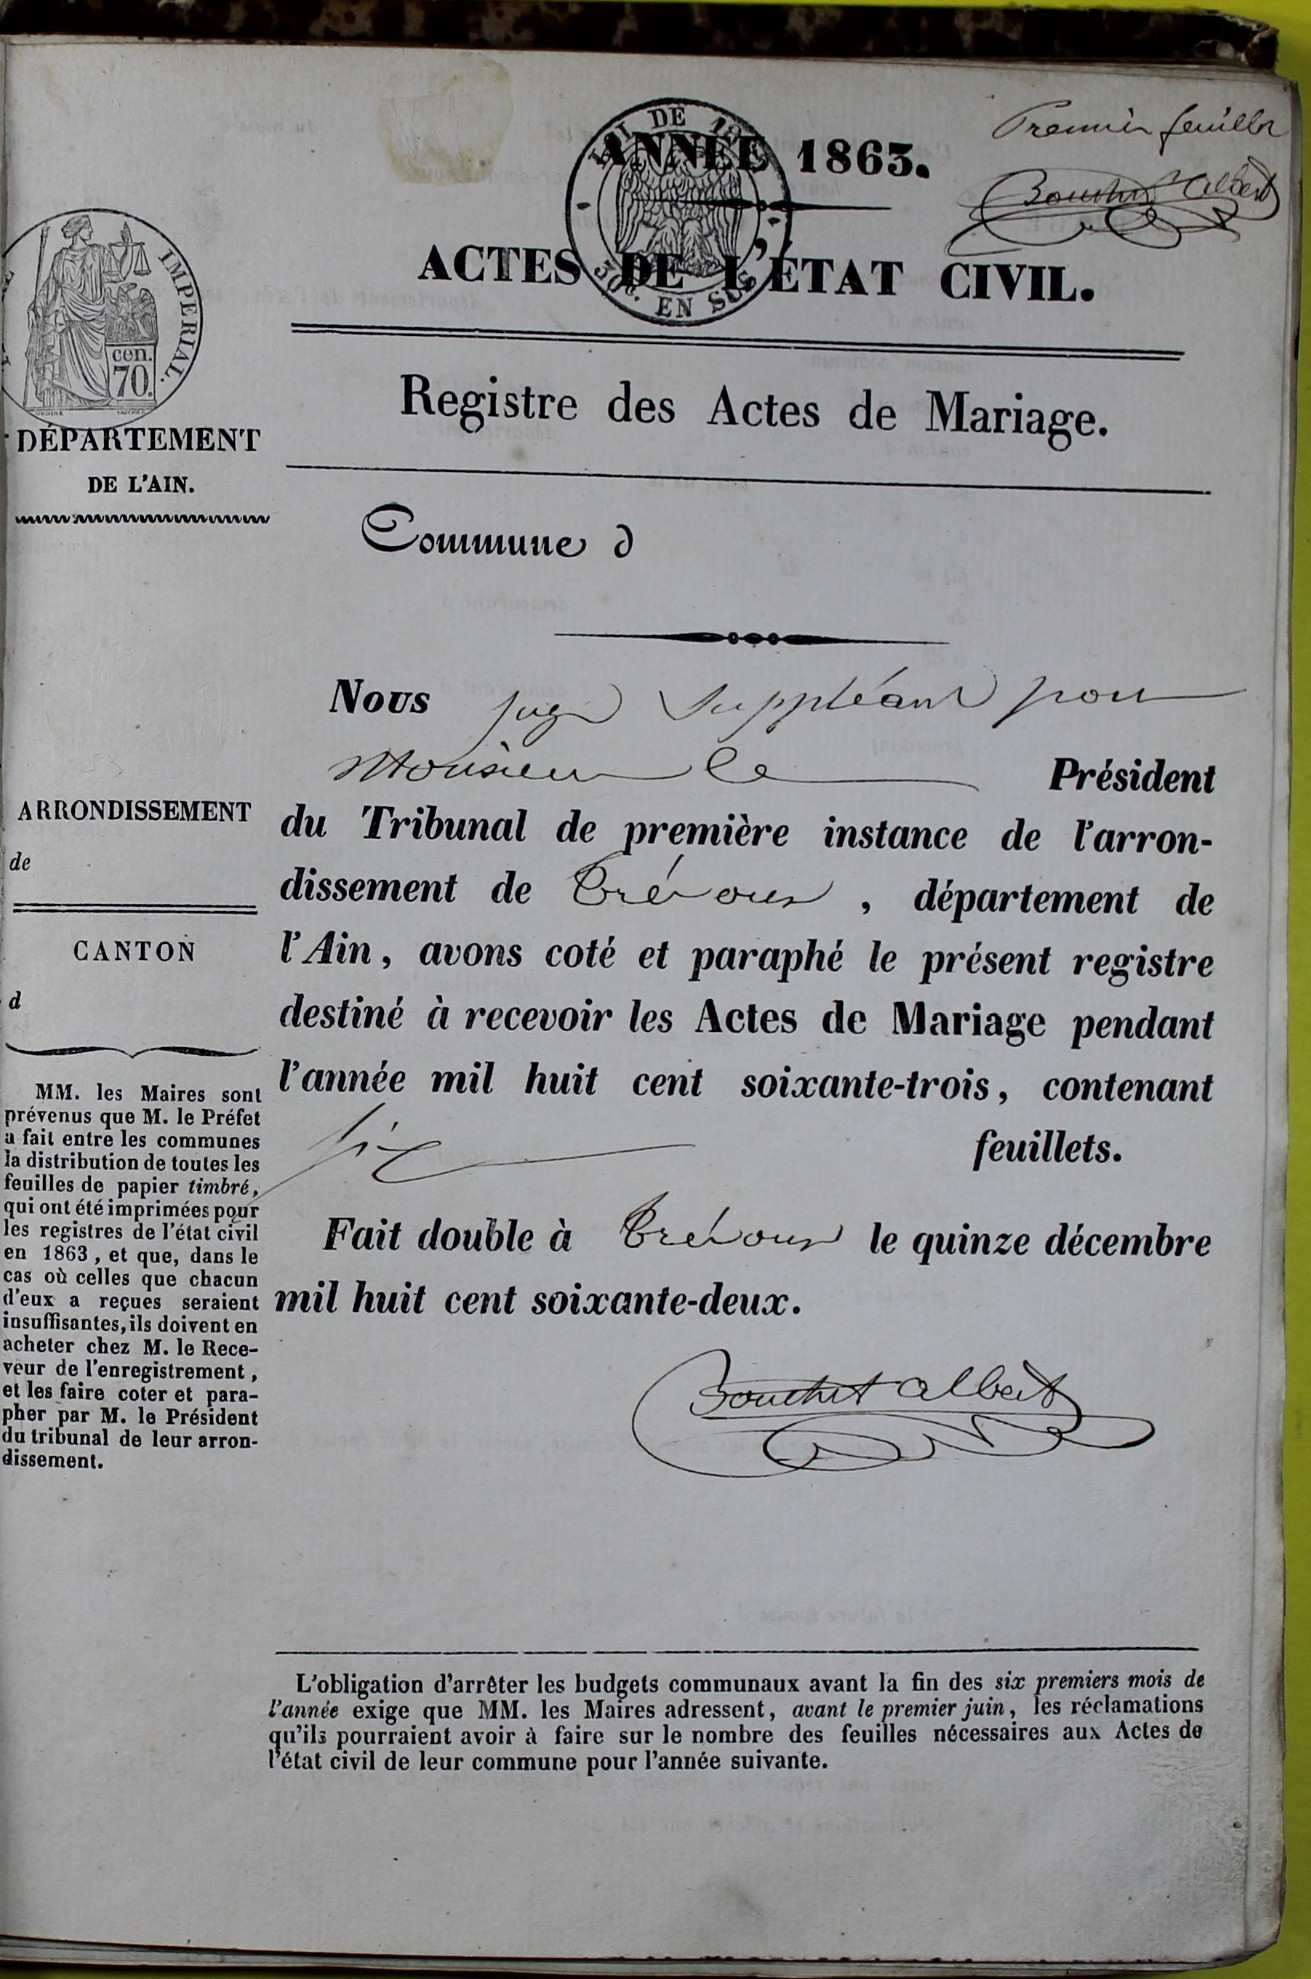 Premier feuillet
Bouchet Albert
LOI DE 18
30c. EN SUS
ANNÉE 1863.
ACTES DE L'ÉTAT CIVIL.
Registre des Actes de Mariage.
IMPERIAL.
cen.
70.
DÉPARTEMENT
DE L'AIN.
Commune d
Nous juge suppléant pour
Monsieur le Président
du Tribunal de première instance de l'arron-
dissement de Trévoux, département de
l'Ain, avons coté et paraphé le présent registre
destiné à recevoir les Actes de Mariage pendant
l'année mil huit cent soixante-trois, contenant
six feuillets.
Fait double à Trévoux le quinze décembre
mil huit cent soixante-deux.
Bouchet Albert
ARRONDISSEMENT
de
CANTON
d
MM. les Maires sont
prévenus que M. le Préfet
a fait entre les communes
la distribution de toutes les
feuilles de papier timbré,
qui ont été imprimées pour
les registres de l'état civil
en 1863, et que, dans le
cas où celles que chacun
d'eux a reçues seraient
insuffisantes, ils doivent en
acheter chez M. le Rece-
veur de l'enregistrement,
et les faire coter et para-
pher par M. le Président
du tribunal de leur arron-
dissement.
L'obligation d'arrêter les budgets communaux avant la fin des six premiers mois de
l'année exige que MM. les Maires adressent, avant le premier juin, les réclamations
qu'ils pourraient avoir à faire sur le nombre des feuilles nécessaires aux Actes de
l'état civil de leur commune pour l'année suivante.